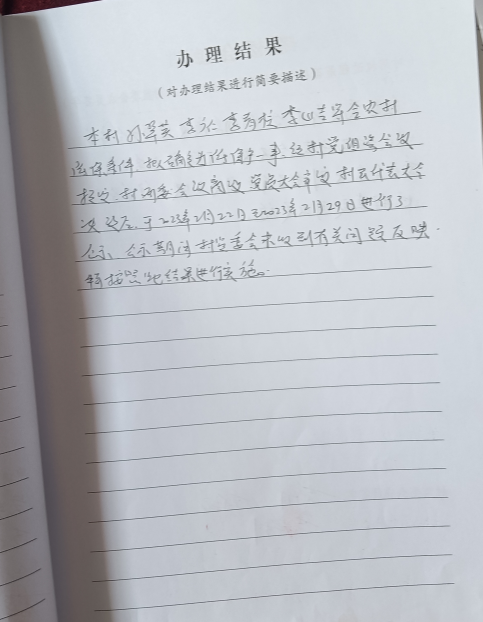 办理结果
（对办理结果进行简要描述）
本村刘翠英 李 李 李 等 农村
低保条件 拟确定为低保户一事，经村党组织会议
提议、村两委会议商议 党员大会审议 村民代表大会
决议后，于2023年21月22日至2023年21月29日进行了
公示，公示期间村监委会未收到有关问题反映。
将按照此结果进行实施。